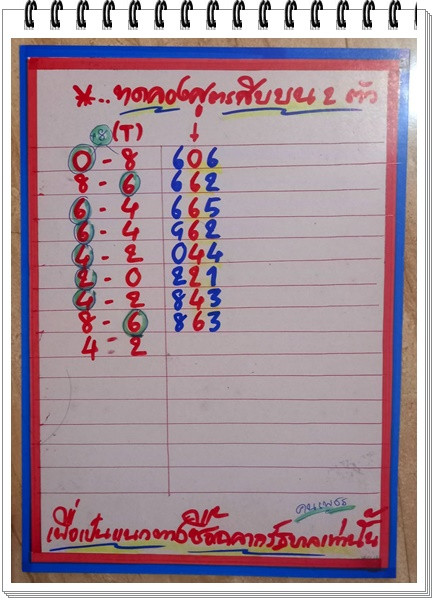 *..ทดลองสูตรสิบบน 2 ตัว
+8 (T) ↓
0 - 8 606
8 - 6 662
6 - 4 665
6 - 4 962
4 - 2 044
2 - 0 221
4 - 2 843
8 - 6 863
4 = 2
คนเพชร
เพื่อเป็นแนวทางซื้อสลากรัฐบาลเท่านั้น